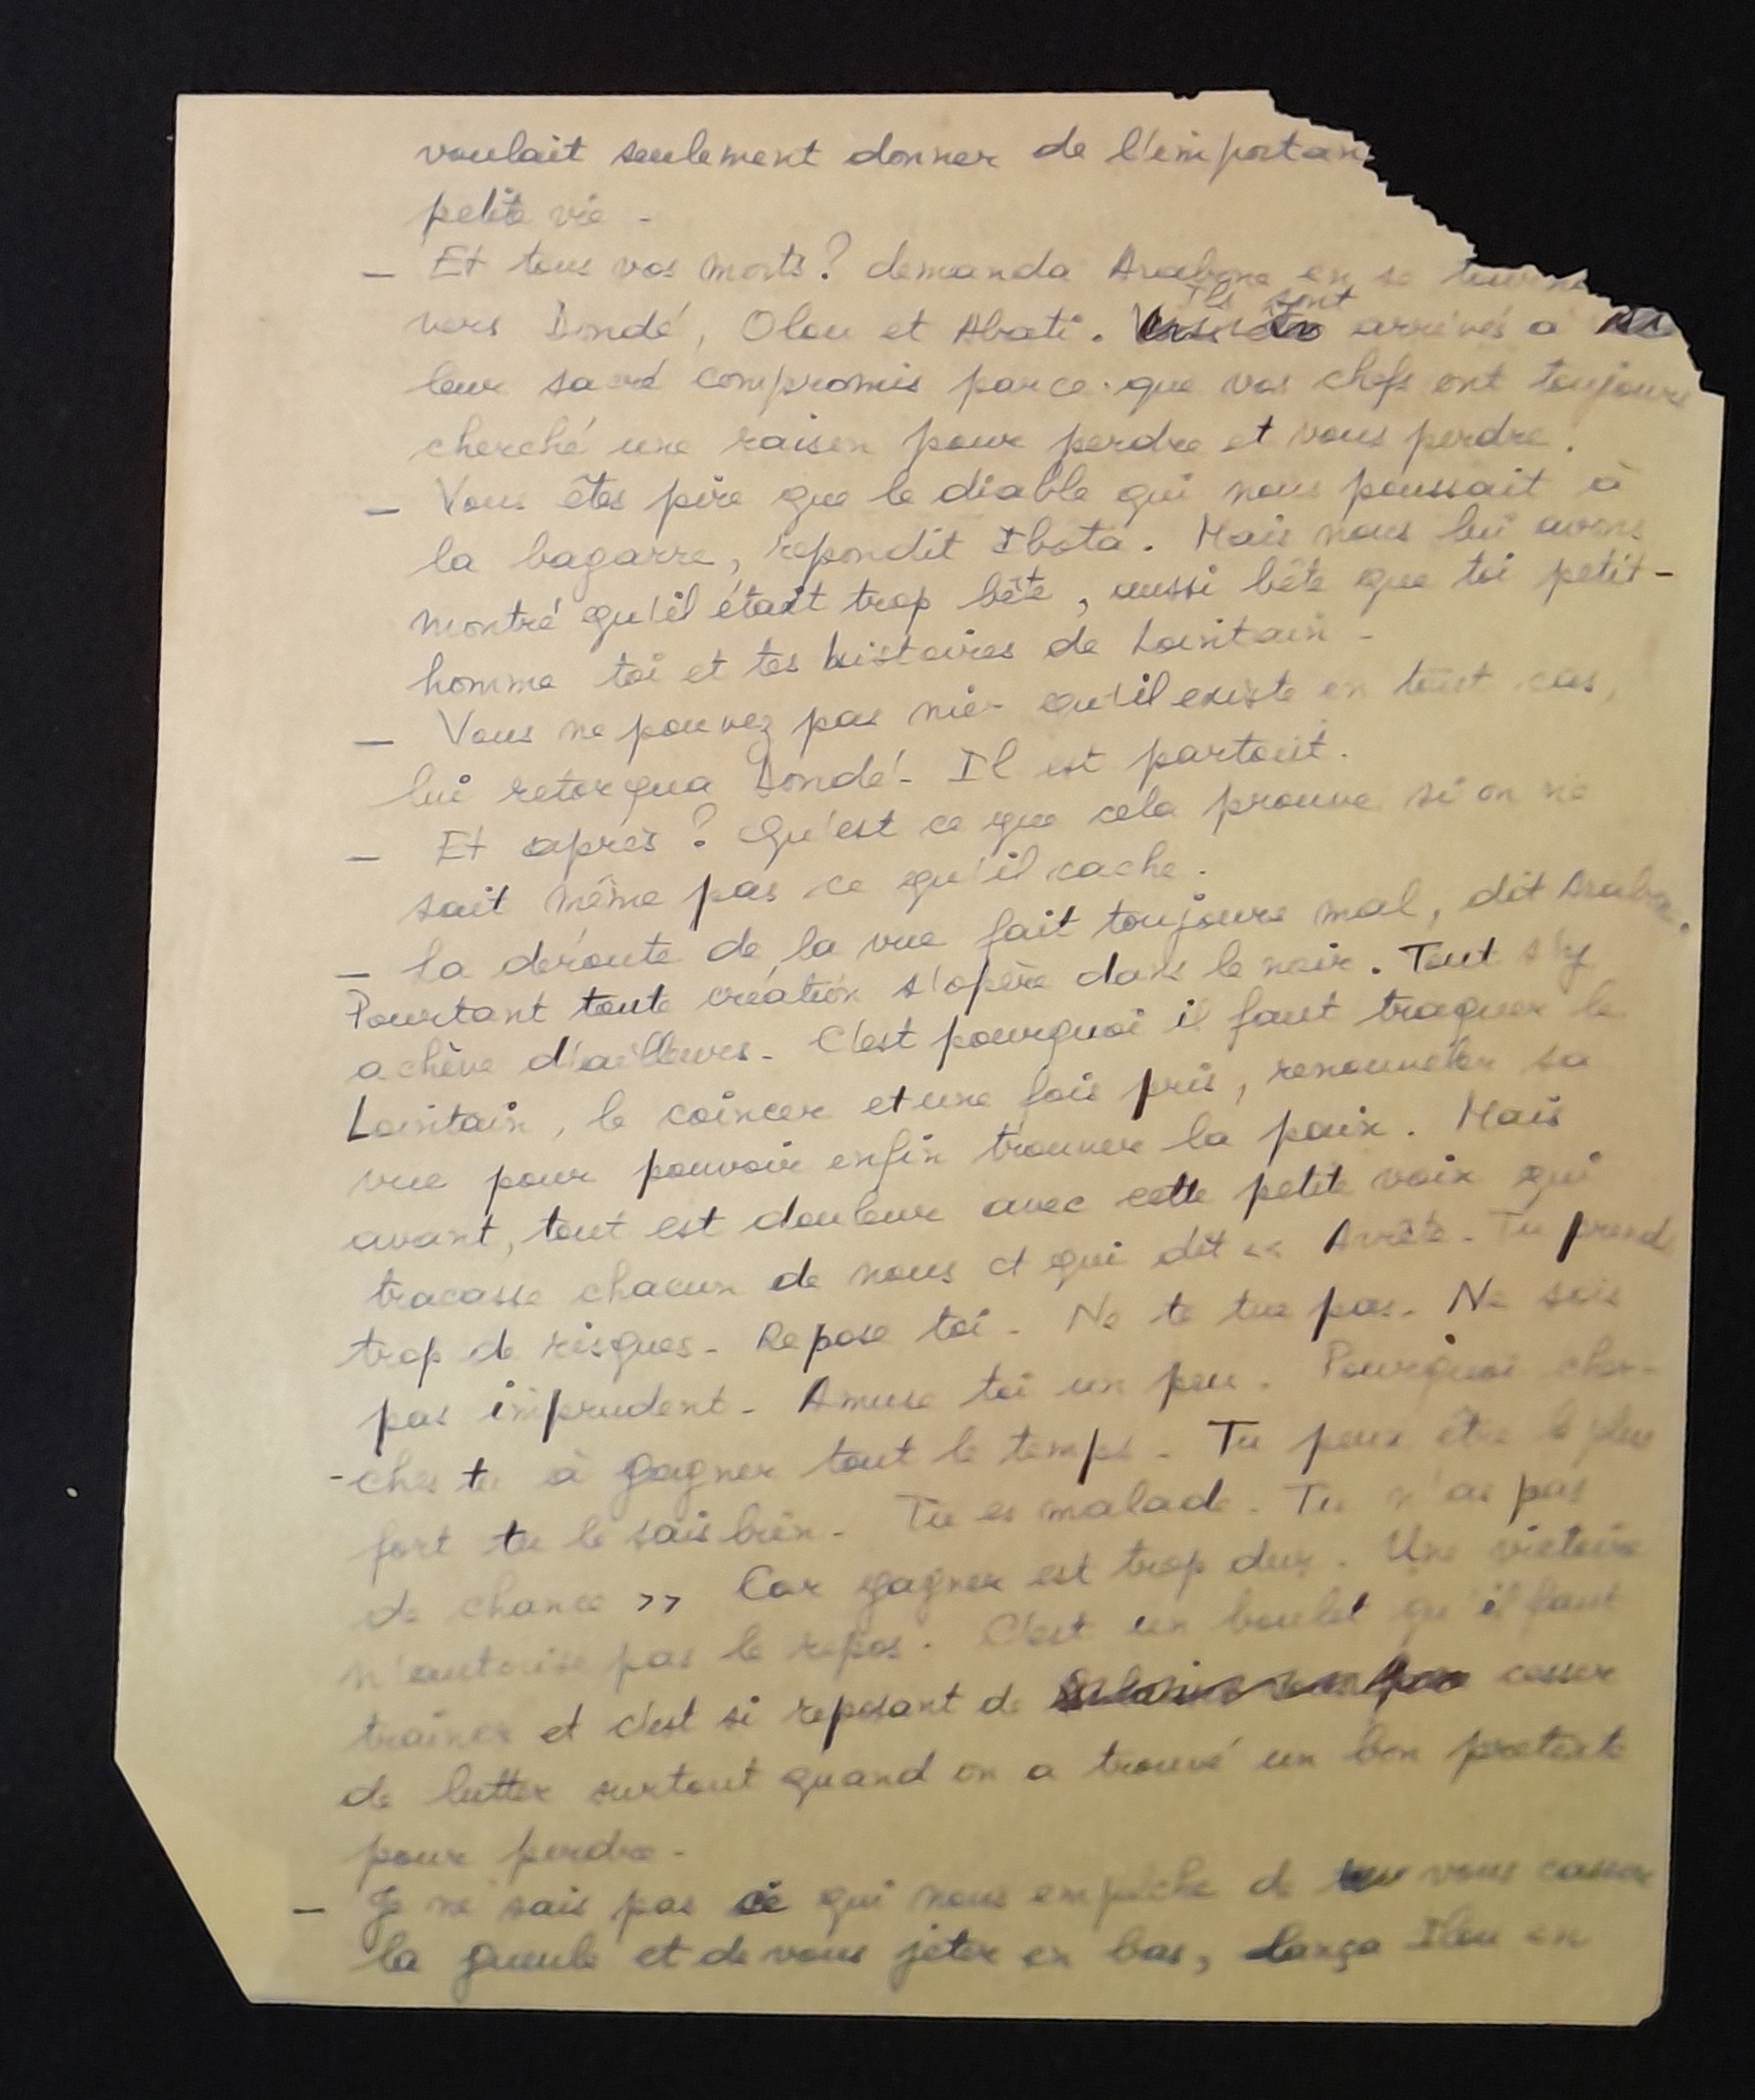 voulait seulement donner de l'importan
petite vie -
— Et tous vos morts ? demanda Arabone en se tourna
Ils sont
vers Dondé, Olou et Abati. arrivés à
leur sacré compromis parce que vos chefs ont toujours
cherché une raison pour perdre et vous perdre.
— Vous êtes pire que le diable qui nous poussait à
la bagarre, repondit Ibota. Mais nous lui avons
montré qu'il était trop bête, aussi bête que toi petit-
homme toi et tes histoires de Lointain -
— Vous ne pouvez pas nier qu'il existe en tout cas,
lui retorqua Dondé - Il est partout.
— Et après ? Qu'est ce que cela prouve si on ne
sait même pas ce qu'il cache.
— La déroute de la vue fait toujours mal, dit
Pourtant toute création s'opère dans le noir. Tout s'y
achève d'ailleurs - C'est pourquoi il faut traquer le
Lointain, le coincer et une fois pris, renouveler sa
vue pour pouvoir enfin trouver la paix. Mais
avant, tout est douleur avec cette petite voix qui
tracasse chacun de nous et qui dit « Arrête - Tu prend
trop de risques - Repose toi - Ne te tue pas - Ne sois
pas imprudent - Amuse toi un peu. Pourquoi cher-
-ches tu à gagner tout le temps - Tu peux être le plus
fort tu le sais bien - Tu es malade. Tu n'as pas
de chance » Car gagner est trop dur. Une victoire
n'autorise pas le repos. C'est un boulet qu'il faut
trainer et c'est si reposant de cesser
de lutter surtout quand on a trouvé un bon pretexte
pour perdre -
— Je ne sais pas ce qui nous empêche de vous casser
la gueule et de vous jeter en bas, lança Ilou en